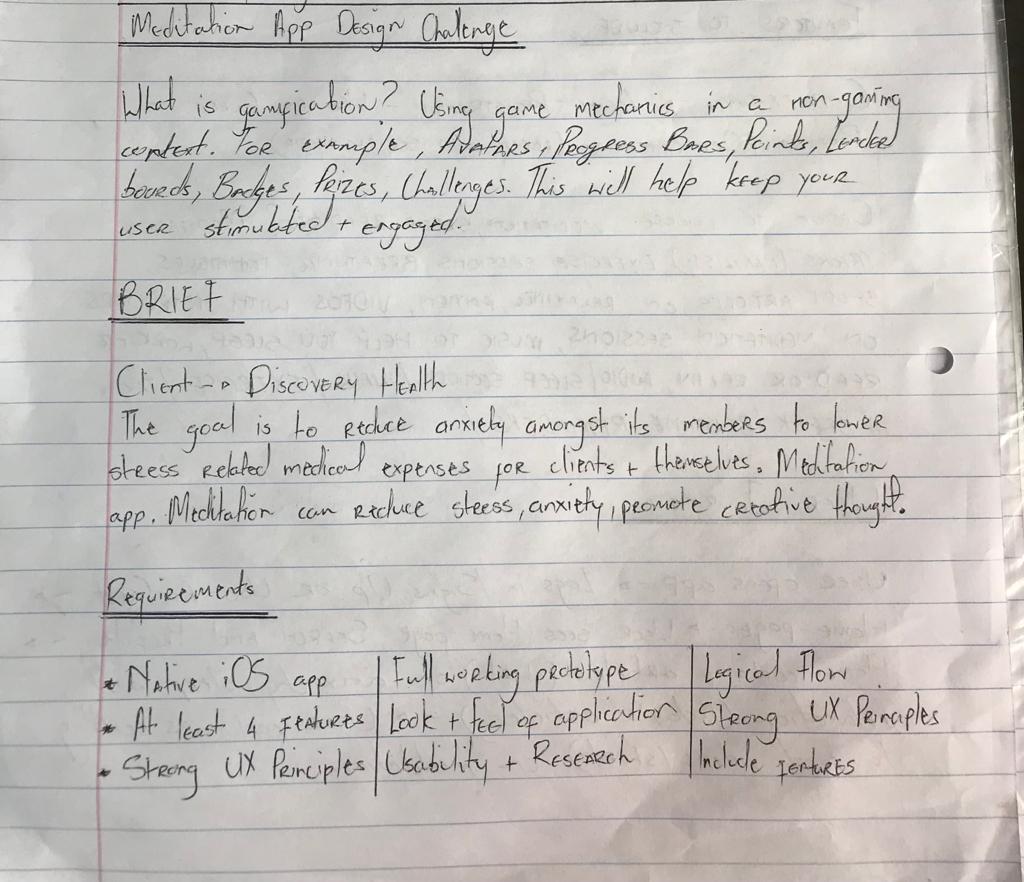 Meditation App Design Challenge
What is gamification? Using game mechanics in a non-gaming
context. For example, Avatars, Progress Bars, Points, Leader
boards, Badges, Prizes, Challenges. This will help keep your
user stimulated + engaged.
BRIEF
Client -> Discovery Health
The goal is to reduce anxiety amongst its members to lower
stress related medical expenses for clients + themselves. Meditation
app. Meditation can reduce stress, anxiety, promote creative thought.
Requirements
* Native iOS app | Full working prototype | Logical Flow
* At least 4 features | Look + feel of application | Strong UX Principles
* Strong UX Principles | Usability + Research | Include features